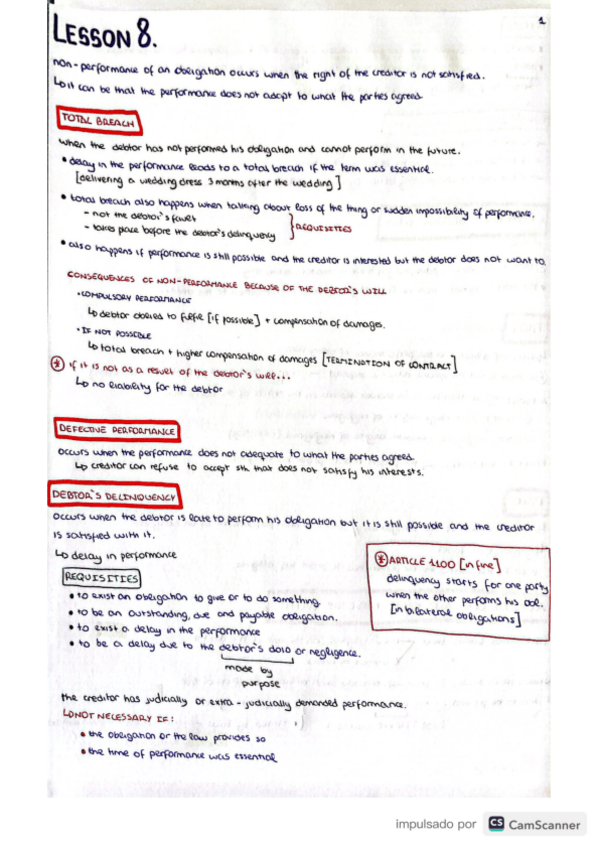 1
LESSON 8.
non-performance of an obligation occurs when the right of the creditor is not satisfied.
↳ it can be that the performance does not adapt to what the parties agreed
TOTAL BREACH
when the debtor has not performed his obligation and cannot perform in the future.
• delay in the performance leads to a total breach if the term was essential.
[delivering a wedding dress 3 months after the wedding]
• total breach also happens when talking about loss of the thing or sudden impossibility of performance.
- not the debtor's fault
- takes place before the debtor's delinquency } REQUISITIES
• also happens if performance is still possible and the creditor is interested but the debtor does not want to
CONSEQUENCES OF NON-PERFORMANCE BECAUSE OF THE DEBTOR'S WILL
• COMPULSORY PERFORMANCE
↳ debtor obliged to fulfil [if possible] + compensation of damages.
• IF NOT POSSIBLE
↳ total breach + higher compensation of damages [TERMINATION OF CONTRACT]
* if it is not as a result of the debtor's will...
↳ no liability for the debtor
DEFECTIVE PERFORMANCE
occurs when the performance does not adequate to what the parties agreed.
↳ creditor can refuse to accept sth that does not satisfy his interests.
DEBTOR'S DELINQUENCY
occurs when the debtor is late to perform his obligation but it is still possible and the creditor
is satisfied with it.
↳ delay in performance
REQUISITIES
• to exist an obligation to give or to do something.
• to be an outstanding, due and payable obligation.
• to exist a delay in the performance
• to be a delay due to the debtor's dolo or negligence.
made by
purpose
* ARTICLE 1100 [in fine]
delinquency starts for one party
when the other performs his obl.
[in bilateral obligations]
the creditor has judicially or extra-judicially demanded performance.
↳ NOT NECESSARY IF:
• the obligation or the law provides so
• the time of performance was essential
impulsado por CS CamScanner